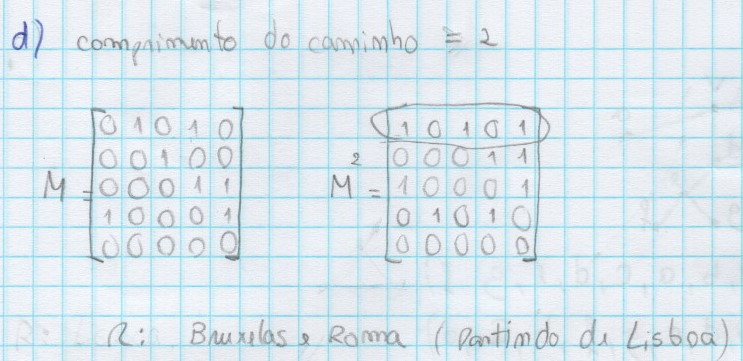 d) comprimento do caminho = 2
M = [0 1 0 1 0
0 0 1 0 0
0 0 0 1 1
1 0 0 0 1
0 0 0 0 0]
M² = [1 0 1 0 1
0 0 0 1 1
1 0 0 0 1
0 1 0 1 0
0 0 0 0 0]
R: Bruxelas e Roma (partindo de Lisboa)